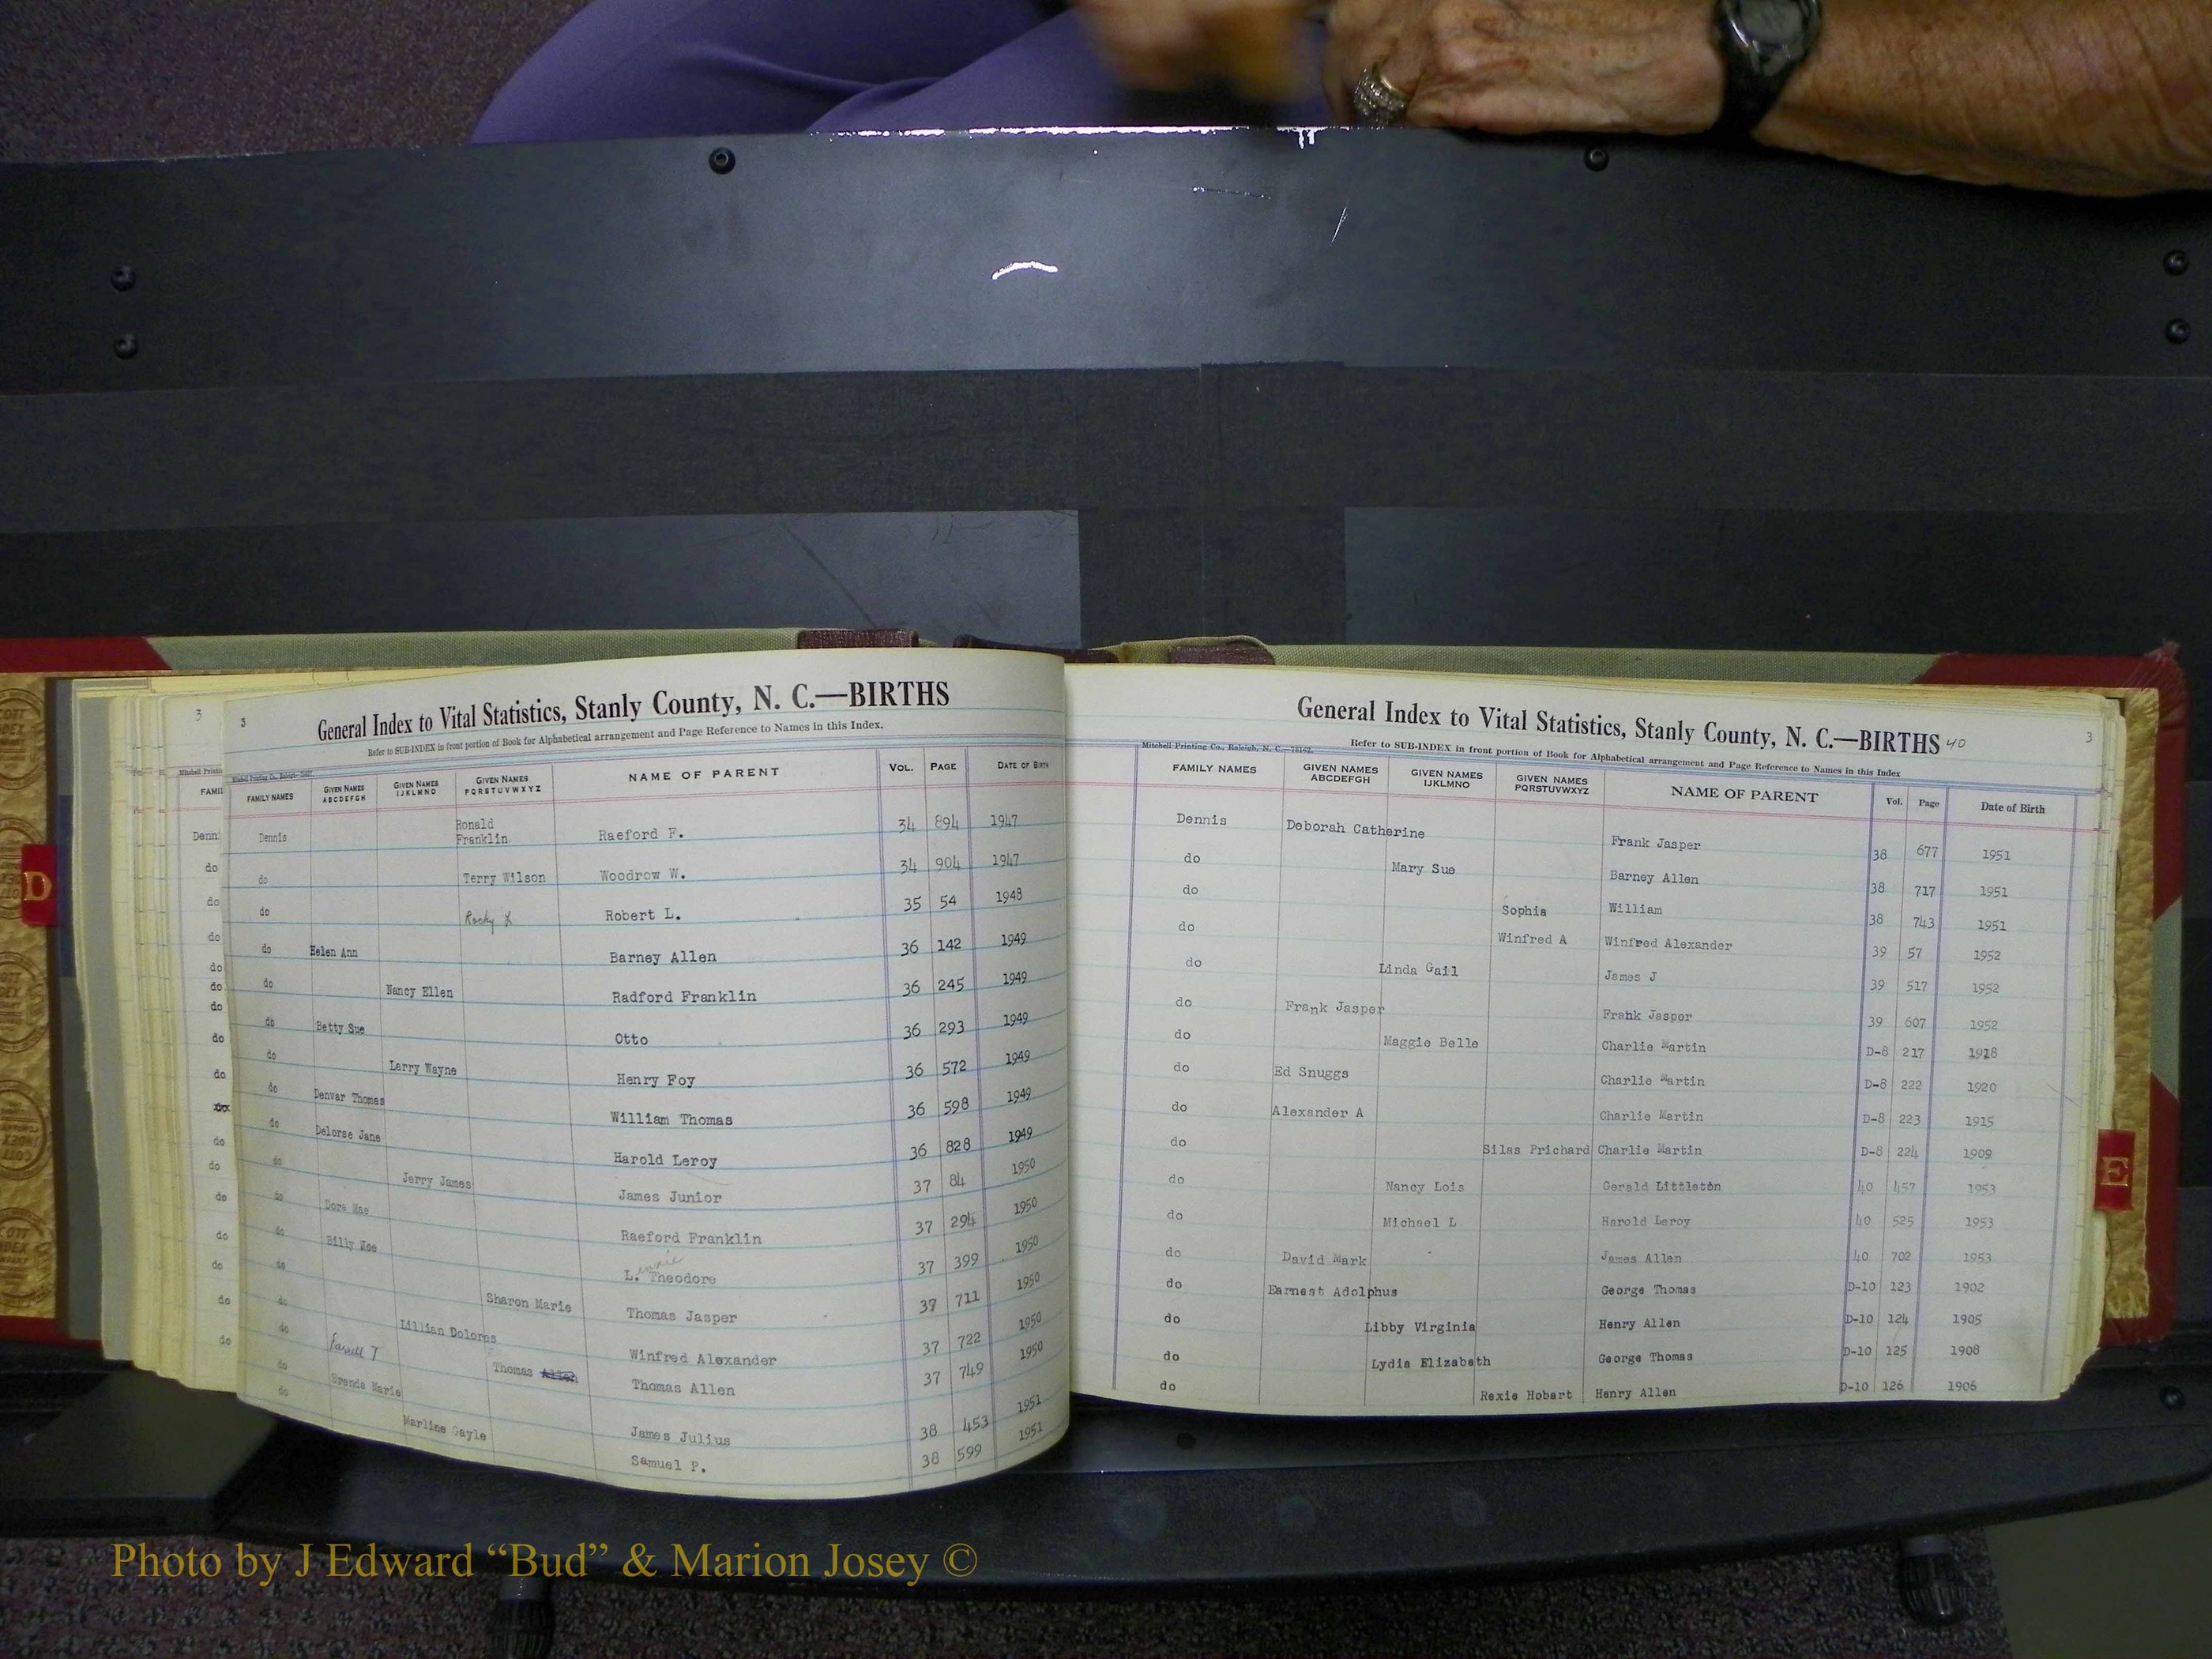 3
General Index to Vital Statistics, Stanly County, N. C.—BIRTHS
Refer to SUB-INDEX in front portion of Book for Alphabetical arrangement and Page Reference to Names in this Index.
FAMILY NAMES GIVEN NAMES ABCDEFGH GIVEN NAMES IJKLMNO GIVEN NAMES PQRSTUVWXYZ NAME OF PARENT VOL. PAGE DATE OF BIRTH
Dennis Ronald Franklin Raeford F. 34 894 1947
do Terry Wilson Woodrow W. 34 904 1947
do Rocky L Robert L. 35 54 1948
do Helen Ann Barney Allen 36 142 1949
do Nancy Ellen Radford Franklin 36 245 1949
do Betty Sue Otto 36 293 1949
do Larry Wayne Henry Foy 36 572 1949
do Denvar Thomas William Thomas 36 598 1949
do Delorse Jane Harold Leroy 36 828 1949
do Jerry James James Junior 37 84 1950
do Dora Mae Raeford Franklin 37 294 1950
do Billy Joe L. Theodore 37 399 1950
do Sharon Marie Thomas Jasper 37 711 1950
do Lillian Dolores Winfred Alexander 37 722 1950
do Thomas Allen Thomas Allen 37 749 1950
do Brenda Marie James Julius 38 453 1951
do Marline Gayle Samuel P. 38 599 1951
General Index to Vital Statistics, Stanly County, N. C.—BIRTHS 40
3
Mitchell Printing Co., Raleigh, N. C.—78162
Refer to SUB-INDEX in front portion of Book for Alphabetical arrangement and Page Reference to Names in this Index
FAMILY NAMES GIVEN NAMES ABCDEFGH GIVEN NAMES IJKLMNO GIVEN NAMES PQRSTUVWXYZ NAME OF PARENT Vol. Page Date of Birth
Dennis Deborah Catherine Frank Jasper 38 677 1951
do Mary Sue Barney Allen 38 717 1951
do Sophia William 38 743 1951
do Winfred A Winfred Alexander 39 57 1952
do Linda Gail James J 39 517 1952
do Frank Jasper Frank Jasper 39 607 1952
do Maggie Belle Charlie Martin D-8 217 1918
do Ed Snuggs Charlie Martin D-8 222 1920
do Alexander A Charlie Martin D-8 223 1915
do Silas Prichard Charlie Martin D-8 224 1909
do Nancy Lois Gerald Littleton 40 457 1953
do Michael L Harold Leroy 40 525 1953
do David Mark James Allen 40 702 1953
do Earnest Adolphus George Thomas D-10 123 1902
do Libby Virginia Henry Allen D-10 124 1905
do Lydia Elizabeth George Thomas D-10 125 1908
do Rexie Hobart Henry Allen D-10 126 1906
D
E
Photo by J Edward “Bud” & Marion Josey ©